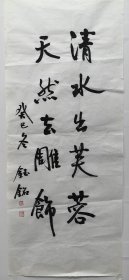 清水出芙蓉
天然去雕飾
癸巳冬
钰銘